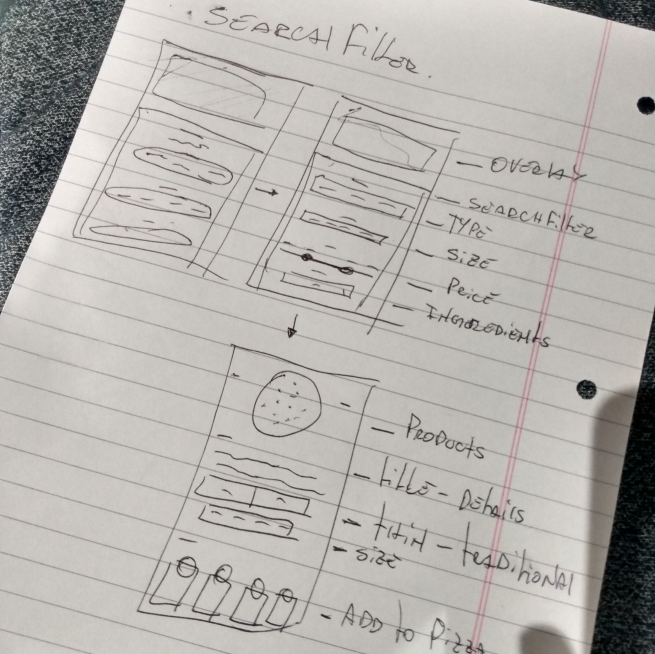 SEARCH Filter.
- OVERLAY
- SEARCH Filter
- TYPE
- SIZE
- PRICE
- INGREDIENTS
- PRODUCTS
- title - Details
- tHiN - tRADitiONAL
- SiZE
- ADD to Pizza